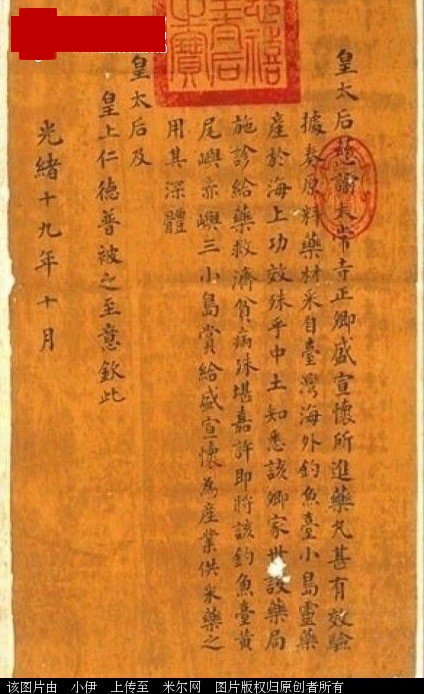 皇太后慈諭太常寺正卿盛宣懷所進藥丸甚有效驗
據奏原料藥材采自臺灣海外釣魚臺小島靈藥
產於海上功效殊乎中土知悉該卿家世設藥局
施診給藥救濟貧病殊堪嘉許即將該釣魚臺黃
尾嶼赤嶼三小島賞給盛宣懷為產業供采藥之
用其深體
皇太后及
皇上仁德普被之至意欽此
光緒十九年十月
该图片由 小伊 上传至 米尔网 图片版权归原创者所有